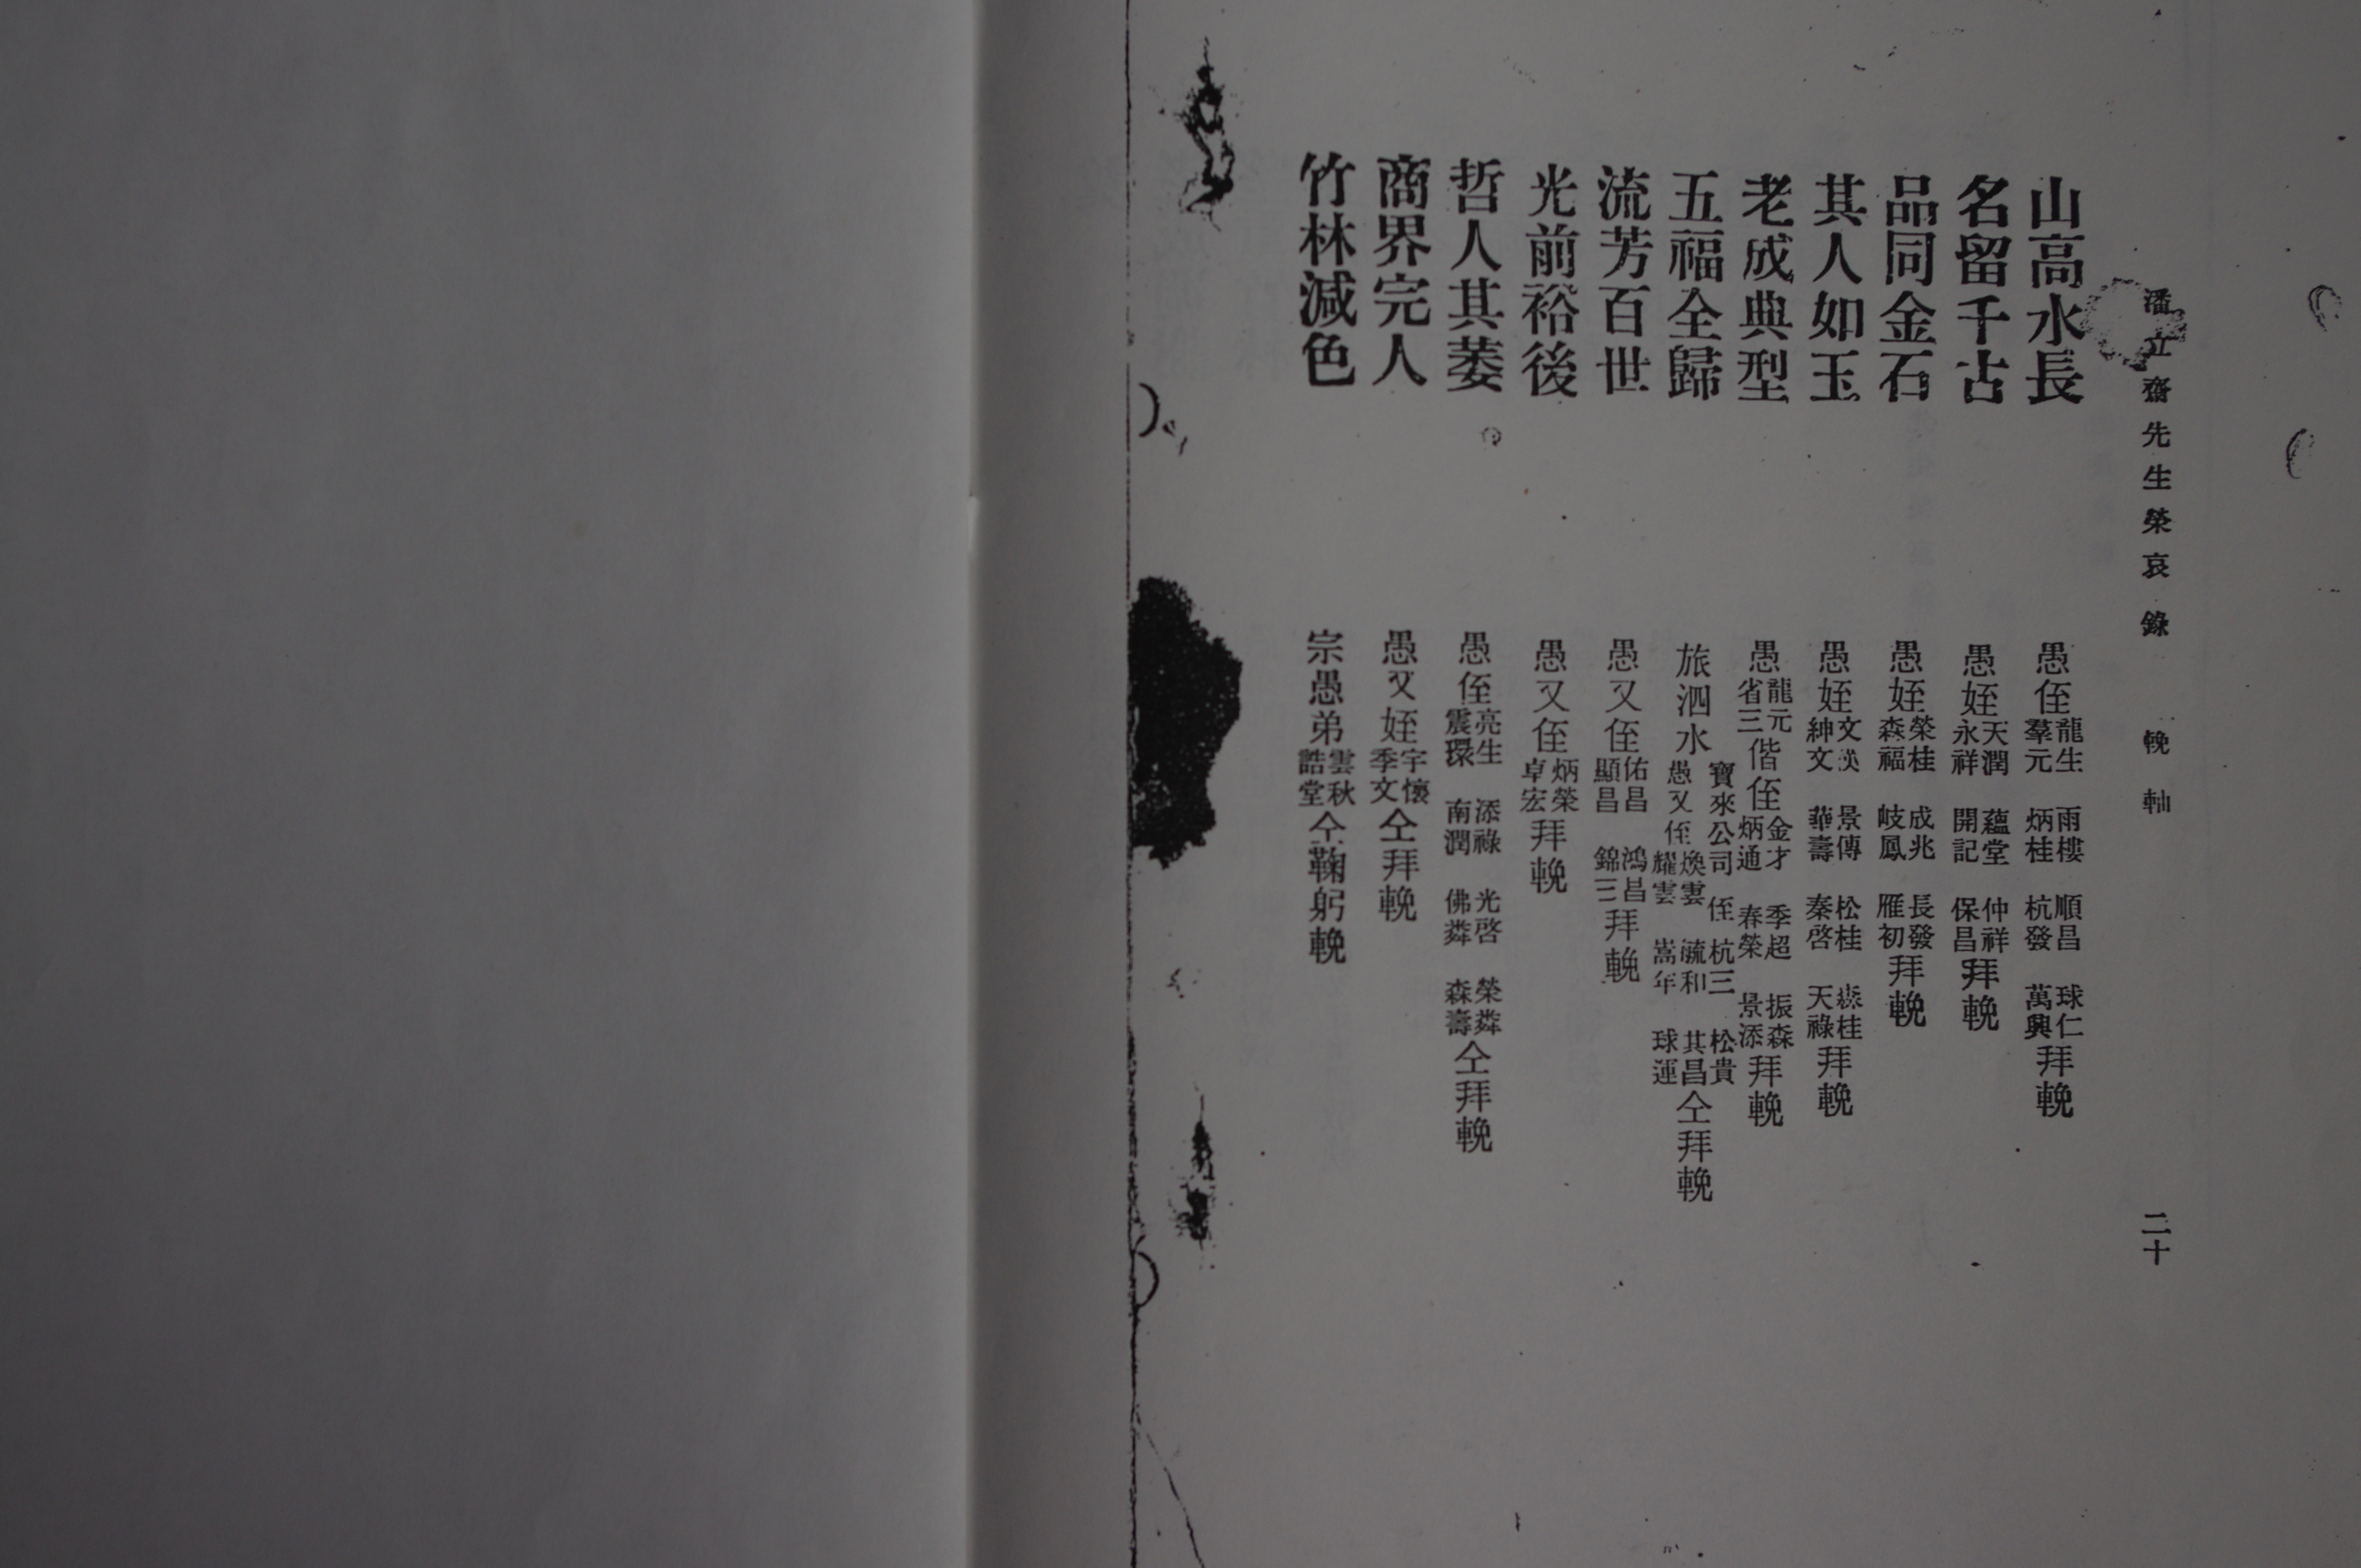 潘立齋先生榮哀錄 輓軸 二十
山高水長 愚侄龍生 羣元 雨樓 炳桂 順昌 杭發 球仁 萬興拜輓
名留千古 愚姪天潤 永祥 蘊堂 開記 仲祥 保昌拜輓
品同金石 愚姪榮桂 森福 成兆 岐鳳 長發 雁初拜輓
其人如玉 愚姪文 紳文 景傳 華壽 松桂 秦啓 桂 天祿拜輓
老成典型 愚龍元 省三偕侄金才 炳通 季超 春榮 振森 景添拜輓
五福全歸 旅泗水寶來公司侄杭三 松貴 愚又侄煥雲 耀雲 毓和 嵩年 其昌 球運仝拜輓
流芳百世 愚又侄佑昌 顯昌 鴻昌 錦三拜輓
光前裕後 愚又侄炳榮 卓宏拜輓
哲人其萎 愚侄亮生 震環 添祿 南潤 光啓 佛粦 榮粦 森壽仝拜輓
商界完人 愚又姪宇懷 季文仝拜輓
竹林減色 宗愚弟雲秋 誥堂仝鞠躬輓